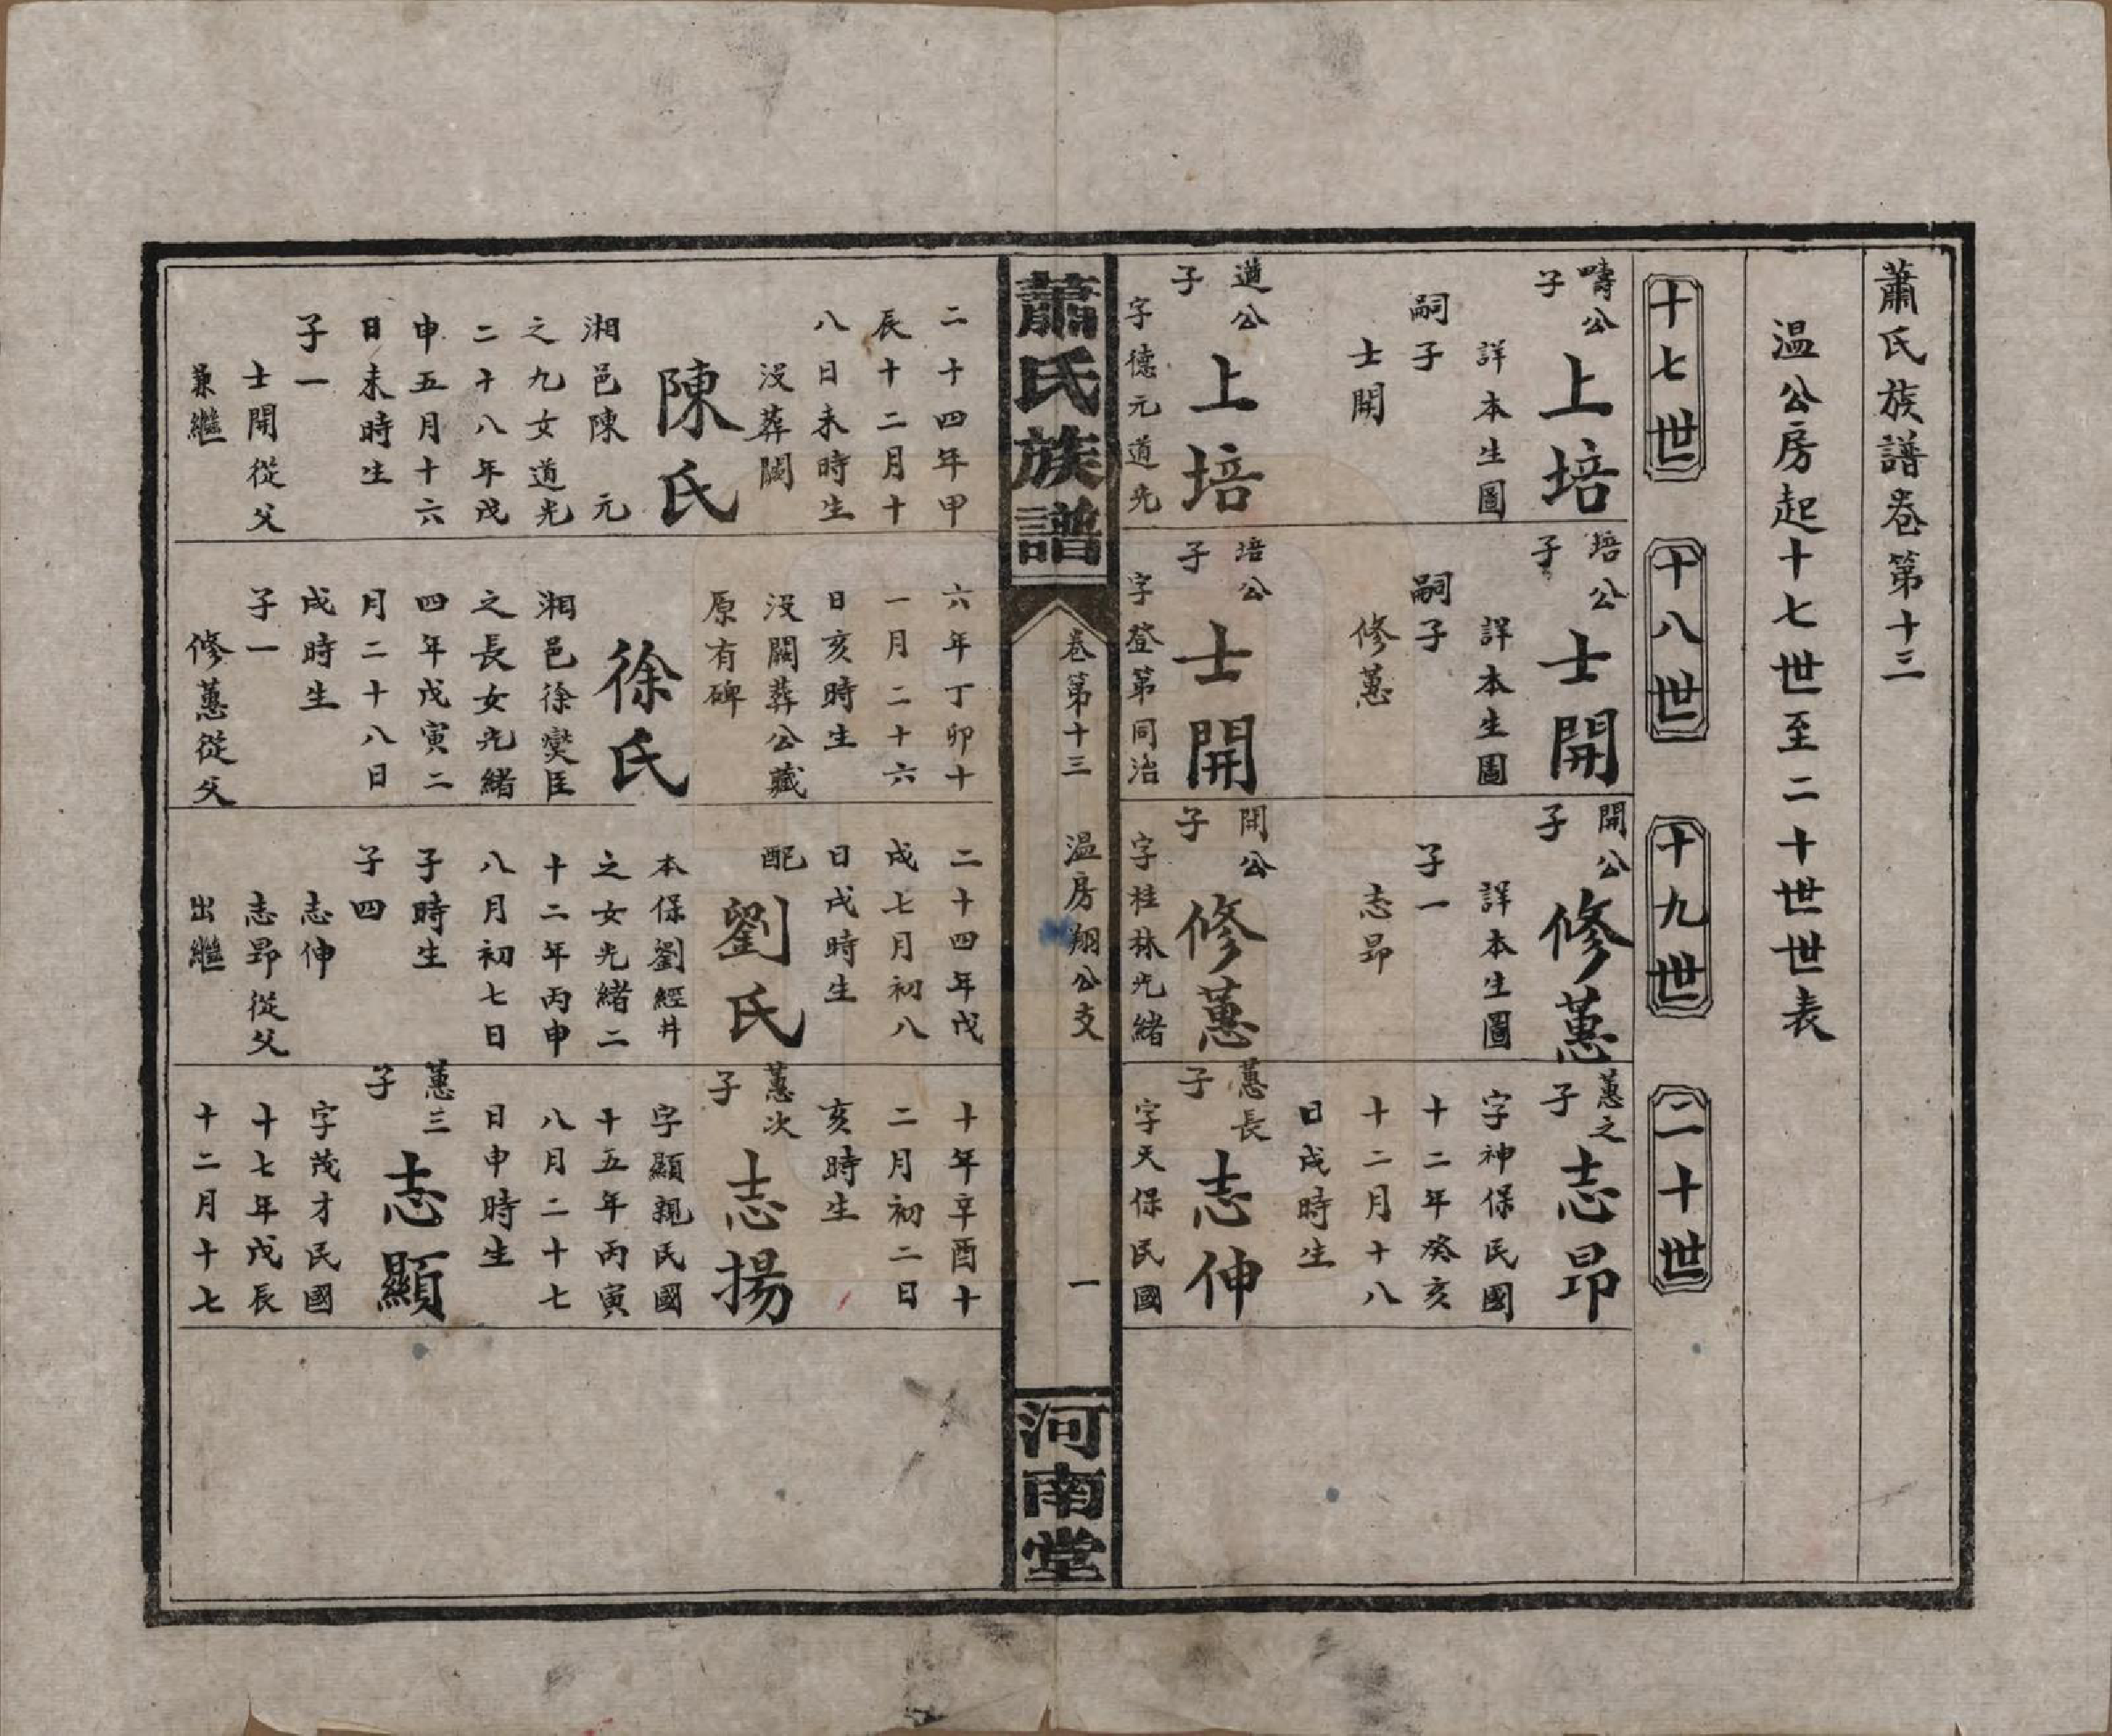 蕭氏族譜卷第十三
溫公房起十七世至二十世世表
十七世
十八世
十九世
二十世
疇公
子
上培
詳本生圖
嗣子
士開
遒公
子
上培
字德元道光
培公
子
士開
詳本生圖
嗣子
修蕙
培公
子
士開
字登第同治
開公
子
修蕙
詳本生圖
子一
志昂
開公
子
修蕙
字桂林光緒
蕙之
子
志昂
字神保民國
十二年癸亥
十二月十八
日戌時生
蕙長
子
志伸
字天保民國
蕭氏族譜
卷第十三
溫房翔公支
一
河南堂
二十四年甲
辰十二月十
八日未時生
沒葬闕
陳氏
湘邑陳 元
之九女道光
二十八年戊
申五月十六
日未時生
子一
士開從父
兼繼
六年丁卯十
一月二十六
日亥時生
沒闕葬公藏
原有碑
徐氏
湘邑徐燮臣
之長女光緒
四年戊寅二
月二十八日
戌時生
子一
修蕙從父
二十四年戊
戌七月初八
日戌時生
配
劉氏
本保劉經井
之女光緒二
十二年丙申
八月初七日
子時生
子四
志伸
志昂從父
出繼
十年辛酉十
二月初二日
亥時生
蕙次
子
志揚
字顯親民國
十五年丙寅
八月二十七
日申時生
蕙三
子
志顯
字茂才民國
十七年戊辰
十二月十七